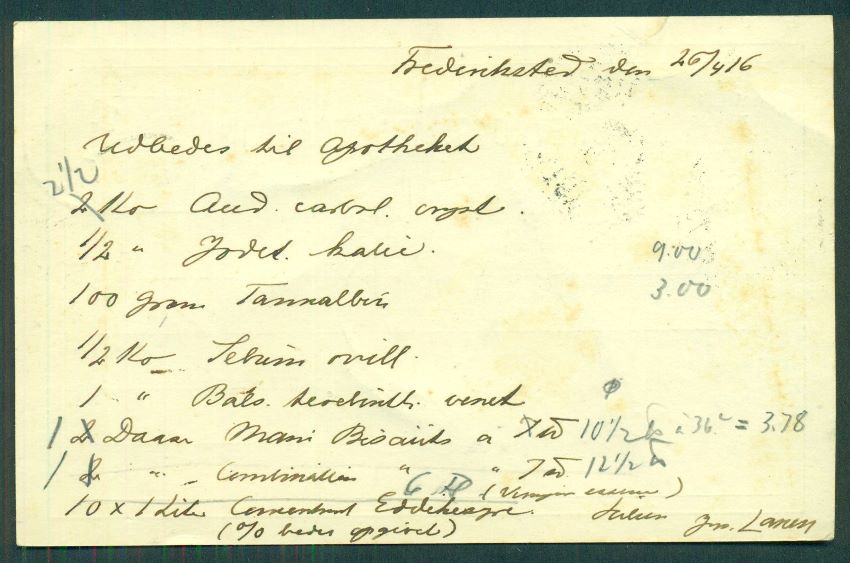 Frederiksted den 26/4 16
Udbedes til Apotheket
2 1/2
2 Ko Acid. carbol. cryst.
1/2 " Jodet. kalic. 9.00
100 gram Tannalbin 3.00
1/2 Ko Sebum ovill.
1 " Bals. terebinth. venet
1 2 Daaser Mari Biscuits a 7 10 1/2 à 36 c = 3.78
1 2 " Combination " " 7 12 1/2
10 x 1 Liter Concentreret Eddikesyre. (Vinegar essence)
(% bedes opgivet) Jns. Larsen